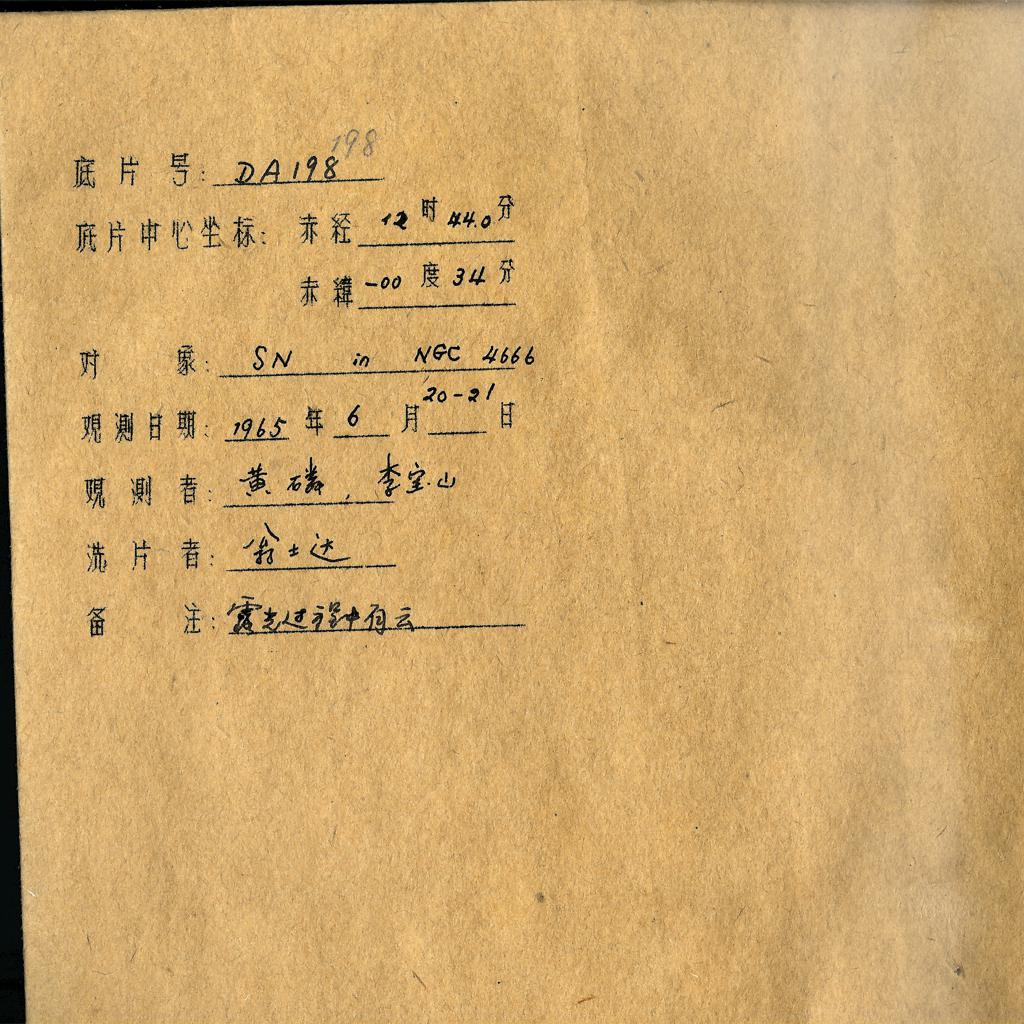 198
底片号: DA198
底片中心坐标: 赤经 12 时 44.0 分
赤緯 -00 度 34 分
对 象: SN in NGC 4666
观测日期: 1965 年 6 月 20-21 日
观测者: 黄磷, 李宝山
洗片者: 翁士达
备注: 露光过程中有云